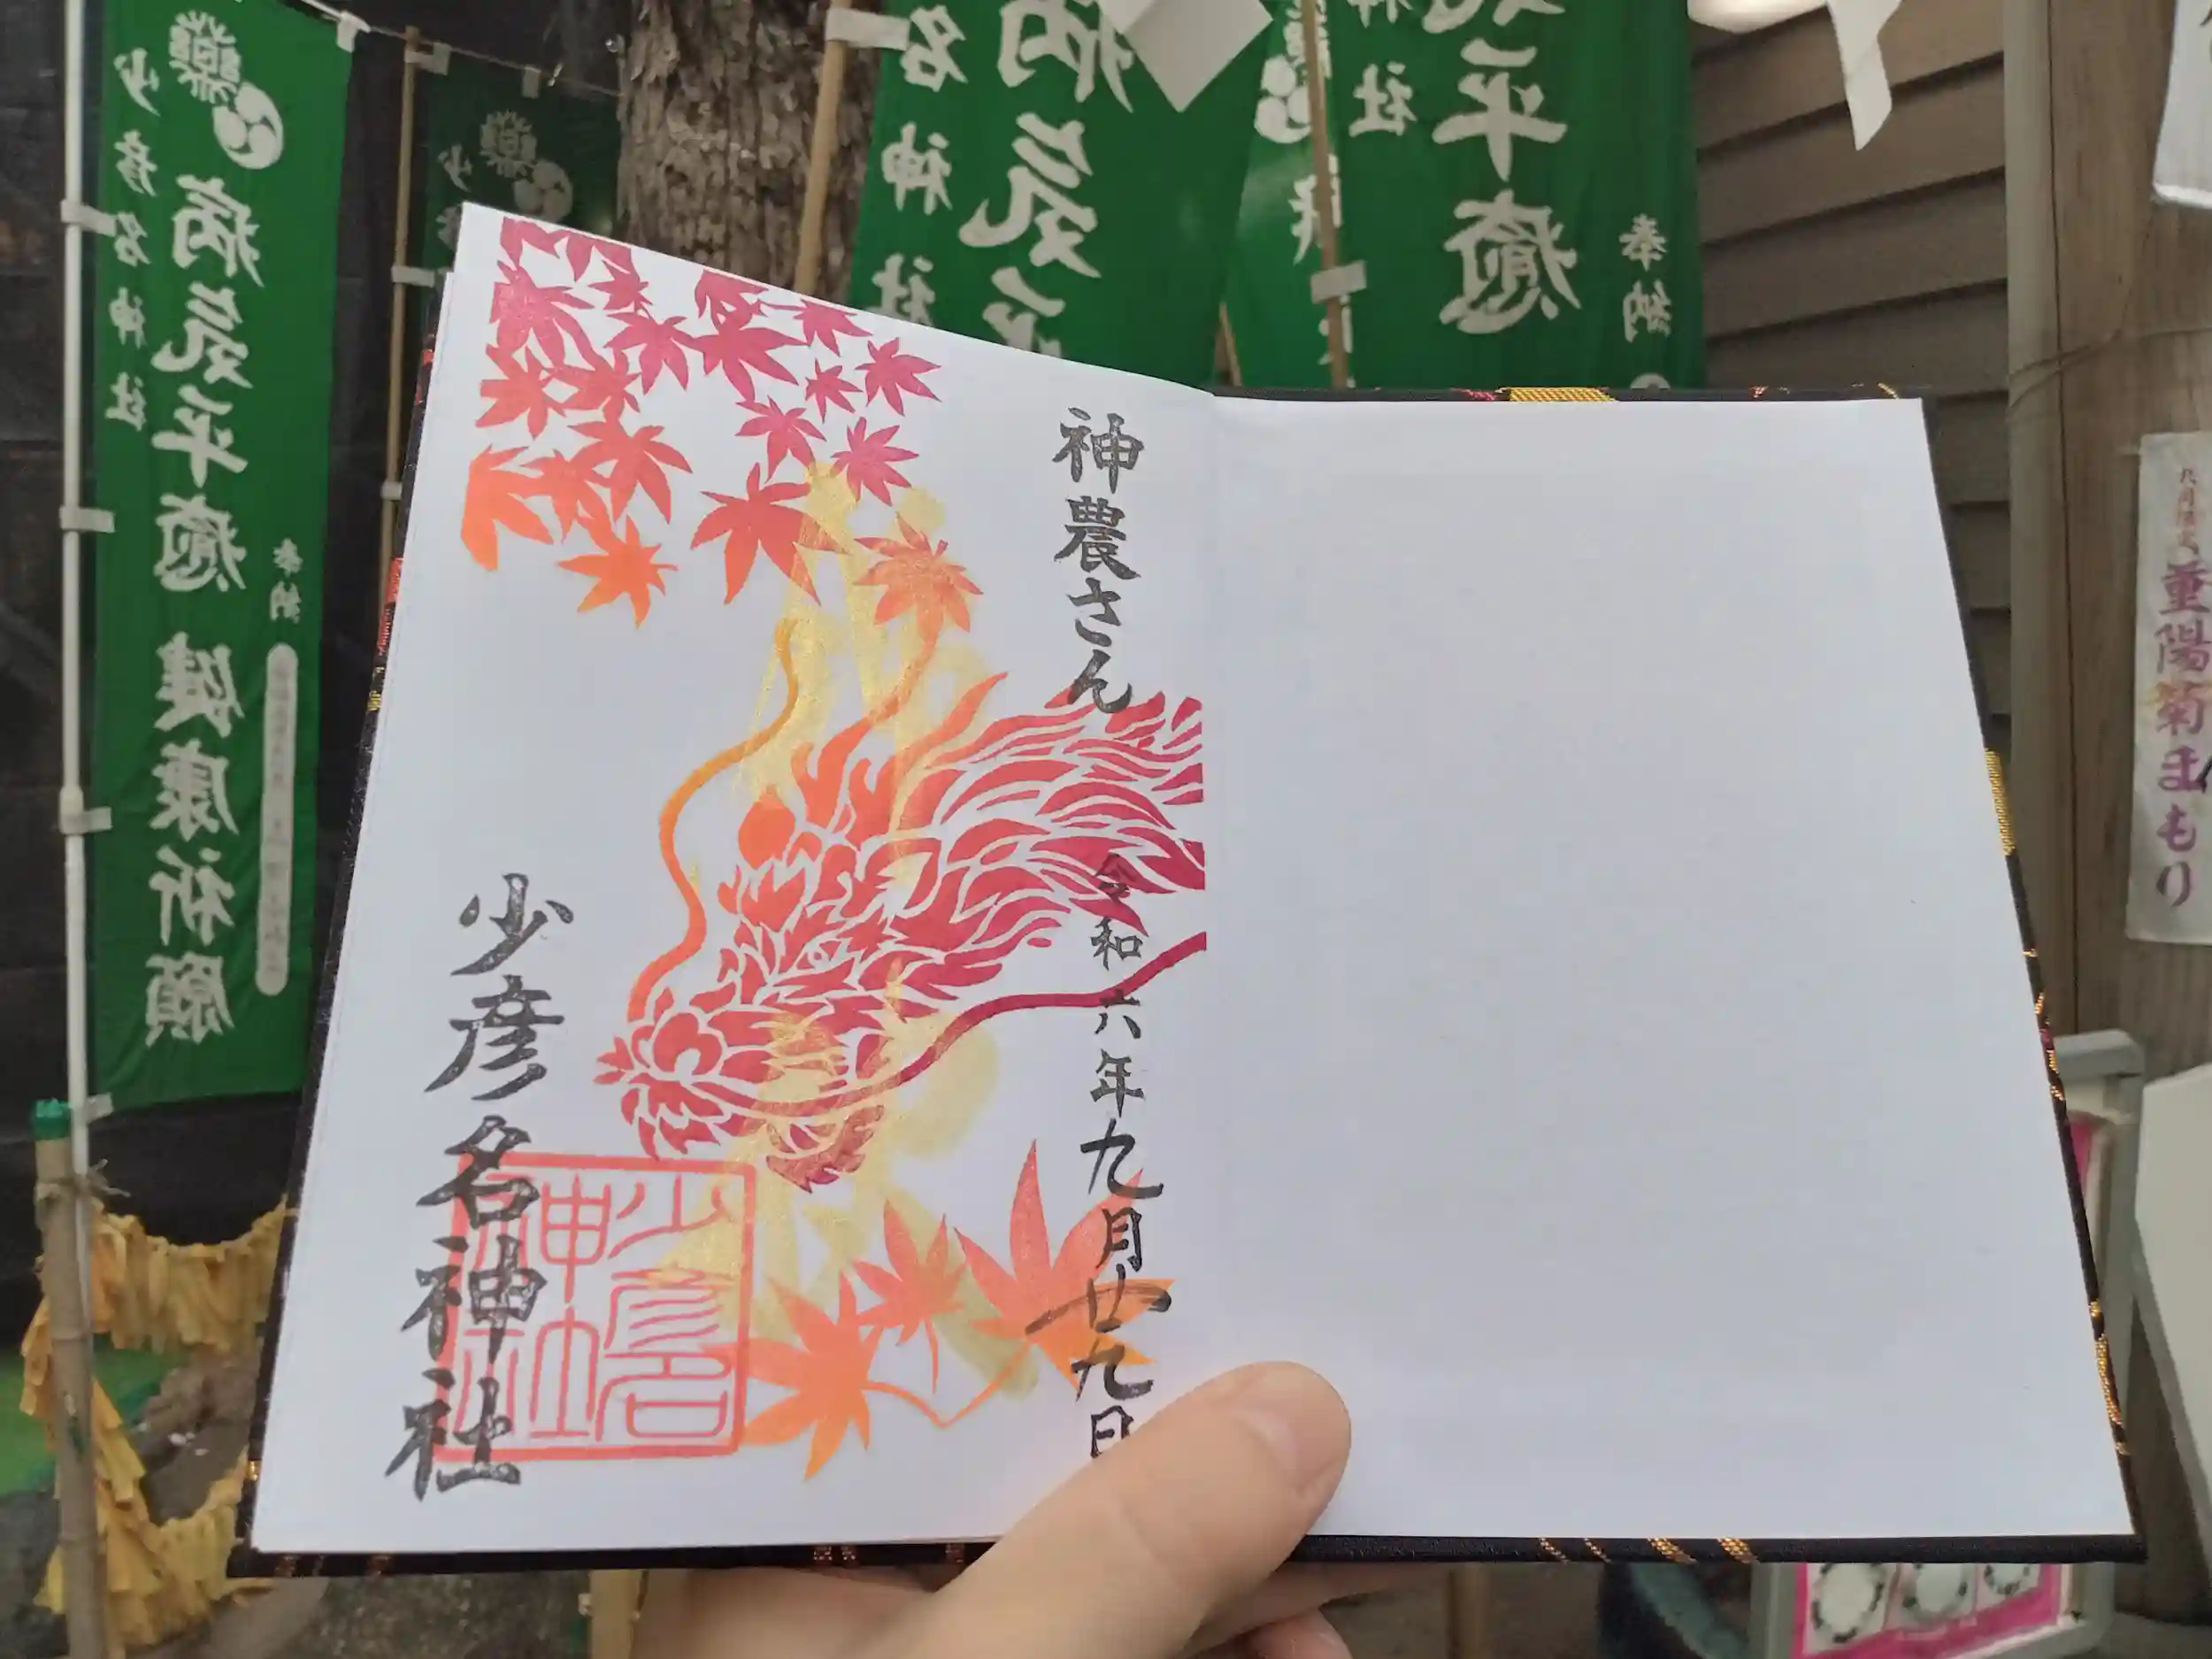 神農さん
令和六年九月廿九日
少彦名神社
少彦名神社
奉納
病気平癒 健康祈願
少彦名神社
少
名神社
病気平
神社
気平癒
奉納
重陽菊まもり